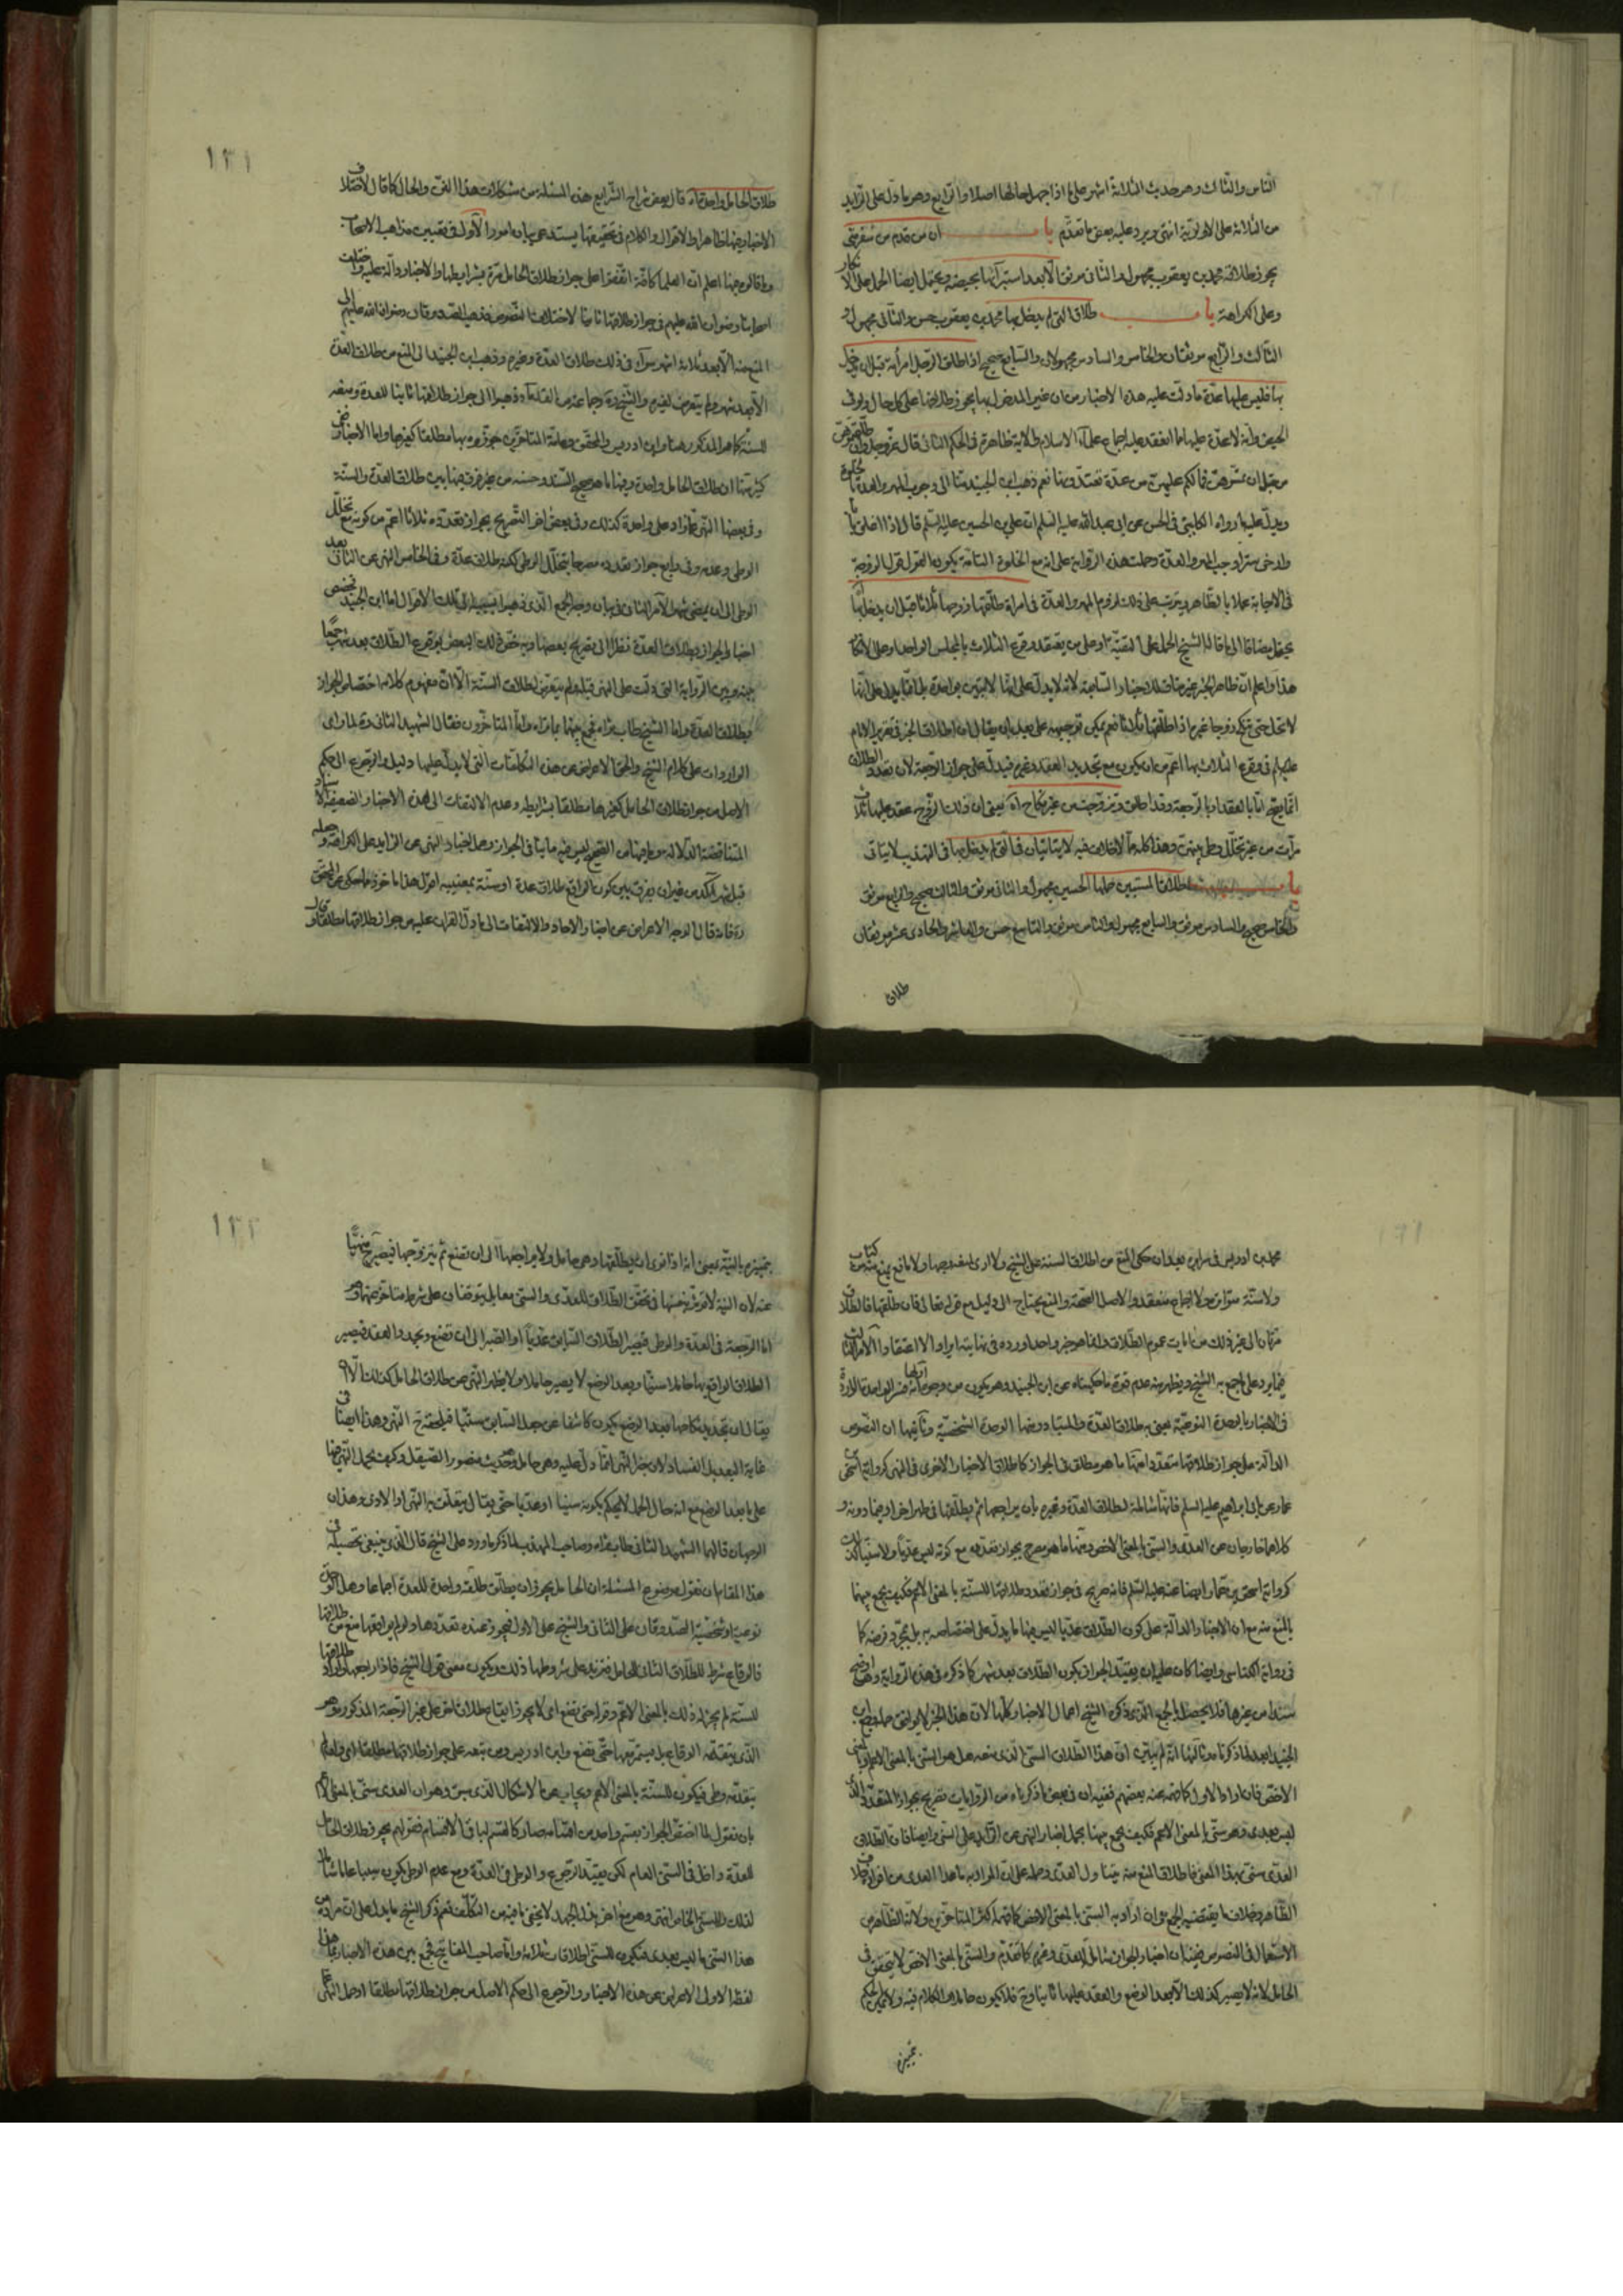 الثامن والثالث وهو حديث الثلاثة اشهر على ما اذا جهل حالها اصلا والرابع وهو ما دل على الزايد
من الثلاثة على الاولوية انتهى ويرد عليه بعض ما تقدم باب ان من قدم من سفر متى
يجوز طلاقه محمد بن يعقوب مجهول والثاني موثق الا بعد استبرائها بحيضة ويحتمل ايضا الحمل على
وعلى الكراهة باب طلاق التي لم يدخل بها محمد بن يعقوب حسن والثاني مجهول و
الثالث والرابع موثقان والخامس والسادس مجهولان والسابع صحيح اذا طلق الرجل امرأته قبل ان يدخل
بها فليس عليها عدة ما دلت عليه هذه الاخبار من ان غير المدخول بها يجوز طلاقها على كل حال ولو في
الحيض وانه لا عدة عليها مما انعقد عليه اجماع علماء الاسلام والآية ظاهرة في الحكم الثاني قال عز وجل وان طلقتموهن
من قبل ان تمسوهن فما لكم عليهن من عدة تعتدونها نعم ذهب ابن الجنيد منا الى وجوب المهر والعدة بالخلوة
ويدل عليه ما رواه الكليني في الحسن عن ابي عبد الله عليه السلم ان علي بن الحسين عليه السلم قال اذا اغلق بابا
وارخى سترا وجب المهر والعدة وحملت هذه الرواية على انه مع الخلوة التامة يكون القول قول الزوجة
في الاجابة عملا بالظاهر ويترتب على ذلك لزوم المهر والعدة في امرأة طلقها زوجها ثلاثا قبل ان يدخل بها
يحتمل مضافا الى ما قاله الشيخ الحمل على التقية او على من يعتقد وقوع الثلاث بالمجلس الواحد او على الانكار
هذا واعلم ان ظاهر الخبر غير مناف لذلك
لا تحل حتى تنكح زوجا غيره اذا طلقها ثلاثا نعم يمكن توجيهه على بعد بان يقال ان اطلاق الخبر في تقرير الامام
عليه السلم في وقوع الثلاث بها اعم من ان يكون مع تجديد العقد وغيره فيدل على جواز الرجعة لان تعدد الطلاق
انما يقع اما بالعقد او بالرجعة وقد اطلق وتزوجت من غير نكاح آه يعني ان ذلك الزوج عقد عليها ثلاث
مرات من غير تخلل وطي بينهن وهذا كله مما لا خلاف فيه لا يتانيان في التي لم يدخل بها في التهذيب لا يتاتى
باب طلاق المستبين حملها الحسين مجهول والثاني موثق والثالث صحيح والرابع موثق
والخامس صحيح والسادس موثق والسابع مجهول والثامن موثق والتاسع حسن والعاشر والحادي عشر موثقان
طلاق
١٣١
طلاق الحامل واحدة آه قال بعض شراح الشرايع هذه المسئلة من مشكلات هذا الفن والحال كما قال لاختلاف
الاخبار فيها ظاهرا والاقوال والكلام في تحقيقها يستدعي بيان امور الاول في تعيين مذاهب الاصحاب
وما قالوه فيها اعلم ان العلماء كافة اتفقوا على جواز طلاق الحامل مرة بشرايطها والاخبار دالة عليه واختلف
اصحابنا رضوان الله عليهم في جواز طلاقها ثانيا لاختلاف النصوص فذهب الصدوقان رضوان الله عليهم الى
المنع منه الا بعد ثلاثة اشهر سواء في ذلك طلاق العدة وغيره وذهب ابن الجنيد الى المنع من طلاق العدة
الا بعد شهر ولم يتعرض لغيره والشيخ ره وجماعة من القدماء ذهبوا الى جواز طلاقها ثانيا للعدة ومنعه
للسنة كما هو المذكور هنا وابن ادريس والمحقق وعامة المتاخرين جوزوه بها مطلقا كغيرها واما الاخبار ففي
كثير منها ان طلاق الحامل واحدة وفيها ما هو صحيح السند وحسنه من غير فرق فيها بين طلاق العدة والسنة
وفي بعضها النهي عما زاد على واحدة كذلك وفي بعض اخر التصريح بجواز تعدده ثلاثا اعم من كونه مع تخلل
الوطي وعدمه وفي رابع جواز تعدده مصرحا بتخلل الوطي لكنه طلاق عدة وفي الخامس النهي عن الثاني بعد
الوطي الى ان يمضي شهر الامر الثاني في بيان وجه الجمع الذي ذهب اليه اهل تلك الاقوال اما ابن الجنيد فخص
اخبار الجواز بطلاق العدة نظرا الى تصريح بعضها به وخص ذلك البعض بوقوع الطلاق بعد شهر جمعا
بينه وبين الرواية التي دلت على النهي قبله ولم يتعرض لطلاق السنة الا ان مفهوم كلامه اختصاص الجواز
بطلاق العدة واما الشيخ طاب ثراه فجمع بينها بما تراه واما المتاخرون فقال الشهيد الثاني ره لما راى
الواردات على كلام الشيخ والحق الاعراض عن هذه التكلفات التي لا يدل عليها دليل والرجوع الى حكم
الاصل من جواز طلاق الحامل كغيرها مطلقا بشرايطه وعدم الالتفات الى هذه الاخبار الضعيفة الاسناد
المتناقضة الدلالة ومع ما فيها من الصحيح ليس فيه ما ينافي الجواز وحمل اخبار النهي عن الزايد على الكراهة وجعله
قبل شهر آكد من غير ان يفرق بين كون الواقع طلاق عدة او سنة بمعنييه اقول هذا ماخوذ مما حكي عن المحقق
ره فانه قال الوجه الاعراض عن اخبار الاحاد والالتفات الى ما دل القران عليه من جواز طلاقها مطلقا وقال
محمد بن ادريس في سرايره بعد ان حكى المنع من طلاق السنة عن الشيخ ولا ارى لمنعه وجها ولا مانع يمنع منه من كتاب
ولا سنة متواترة ولا اجماع منعقد والاصل الصحة والمنع يحتاج الى دليل مع قوله تعالى فان طلقها فالطلاق
مرتان الى غير ذلك من آيات عموم الطلاق وانما هو خبر واحد اورده في نهايته ايرادا لا اعتقادا الامر الثالث
فيما يرد على ما جمع به الشيخ ويظهر منه عدم قوة ما حكيناه عن ابن الجنيد وهو يكون من وجوه اولها انه فسر الواحدة الواردة
في الاخبار بالوحدة النوعية يعني به طلاق العدة والمتبادر منها الوحدة الشخصية وثانيها ان النصوص
الدالة على جواز طلاقها متعددا منها ما هو مطلق في الجواز كاطلاق الاخبار الاخرى في النهي كرواية اسحق بن
عمار عن ابي ابراهيم عليه السلم فانها شاملة لطلاق العدة وغيره بان يراجعها ثم يطلقها في طهر اخر او فيما دونه و
كلاهما خارجان عن العدة والسني بالمعنى الاخص ومنها ما هو صريح بجواز تعدده مع كونه ليس عديا ولا سنيا كذلك
كرواية اسحق بن عمار ايضا عنه عليه السلم فانه صريح في جواز تعدد طلاقها للسنة بالمعنى الاعم فكيف يجمع بينها
بالمنع منه مع ان الاخبار الدالة على كون الطلاق عديا ليس فيها ما يدل على اختصاصه به بل مجرد فرضه كما
في رواية الكناسي وايضا كان عليه ان يقيد الجواز بكون الطلاق بعد شهر كما ذكره في هذه الرواية وهي اوضح
سندا من غيرها فلا يحصل الجمع الذي ذكره الشيخ اعمال الاخبار كلها لان هذا الخبر لا يوافق
الجنيد ابعد لما ذكرنا وثالثها انه لم يتبين ان هذا الطلاق السني الذي منعه هل هو السني بالمعنى الاعم او بالمعنى
الاخص فان اراد الاول كما فهمه عنه بعضهم ففيه ان في بعض ما ذكرناه من الروايات تصريح بجواز المتعدد الذي
ليس بعدي وهو سني بالمعنى الاعم فكيف يجمع بينها بحمل اخبار النهي عن الزايد على السني وايضا فان الطلاق
العدي سني بهذا المعنى فاطلاق المنع منه يتناول العدي وحمله على ان المراد به ما عدا العدي من افراده خلاف
الظاهر وخلاف ما يقتضيه الجمع وان اراد به السني بالمعنى الاخص كما فهمه اكثر المتاخرين ولانه الظاهر من
الاستعمال في النصوص ففيه ان اخبار الجواز شاملة للعدي وغيره كما تقدم والسني بالمعنى الاخص لا يتحقق في
الحامل لانه لا يصير كذلك الا بعد الوضع والعقد عليها ثانيا وح فلا يكون حاملا والكلام فيه ولا يمكن الحكم
بتميزه
١٣٢
بتميزه بالنية بمعنى انه اذا نوى ان يطلقها وهي حامل ولا يراجعها الى ان تضع ثم يتزوجها فيصير ح منهيا
عنه لان النية لا تؤثر بنفسها في تحقق الطلاق للعدي والسني مقابله يتوقفان على شرط متاخر عنهما وهو
اما الرجعة في العدة والوطي فيصير الطلاق السابق عديا او الصبر الى ان تضع ويجدد العقد فيصير
الطلاق الواقع بها حاملا سنيا وبعد الوضع لا يصير حاملا ولا يظهر النهي عن طلاق الحامل كذلك الا ان
يقال ان تجديد نكاحها بعد الوضع يكون كاشفا عن جعل السابق سنيا فيلحقه ح النهي وهذا ايضا في
غاية البعد بل الفساد لان خبر النهي انما دل عليه وهي حامل وحديث منصور الصيقل وكيف يحمل النهي فيها
على ما بعد الوضع مع انه حال الحمل لا يحكم بكونه سنيا او عديا حتى يقال يتعلق به النهي اولا وى وهذان
الوجهان قالهما الشهيد الثاني طاب ثراه وصاحب المهذب لما ذكر ما ورد على الشيخ قال الذي ينبغي تحصيله في
هذا المقام ان نقول موضوع المسئلة ان الحامل يجوز ان يطلق طلقة واحدة للعدة اجماعا وهل الوحدة
نوعية او شخصية الصدوقان على الثاني والشيخ على الاول فيجوز عنده تعددها ولو لم يواقعها منع من طلاقها
فالوقاع شرط للطلاق الثاني للحامل فنزيد على شروطها ذلك ويكون معنى قول الشيخ فاذا راجعها واراد طلاقها
للسنة لم يجز له ذلك بالمعنى الاعم وقوله حتى تضع اي لا يجوز ايقاع طلاق اخر على غير الرجعة المذكورة وهو
الذي يتعقبه الوقاع بل يستمر بها حتى تضع وابن ادريس ومن تبعه على جواز طلاقها مطلقا اي وان لم
يتعقبه وطي فيكون للسنة بالمعنى الاعم ويجاب عن الاشكال الذي سبق وهو ان العدي سني بالمعنى الاعم
بان نقول لما اختص الجواز بقسم واحد من اقسامه صار كالقسيم لباقي الاقسام فقولهم يجوز طلاق الحامل
للعدة داخل في السني العام لكن بقيد الرجوع والوطي في العدة ومع عدم الوطي يكون سنيا عاما شاملا
لذلك وللسني الخاص انتهى وهو مع افراغه الجهد لا يخفى ما فيه من التكلف نعم ذكر الشيخ ما يدل على ان مراده من
هذا السني ما ليس بعدي فيكون للسني اطلاقات ثلاثة واما صاحب المفاتيح فجمع بين هذه الاخبار بما هذا
لفظه الاولى الاعراض عن هذه الاخبار والرجوع الى حكم الاصل من جواز طلاقها مطلقا او حمل النهي